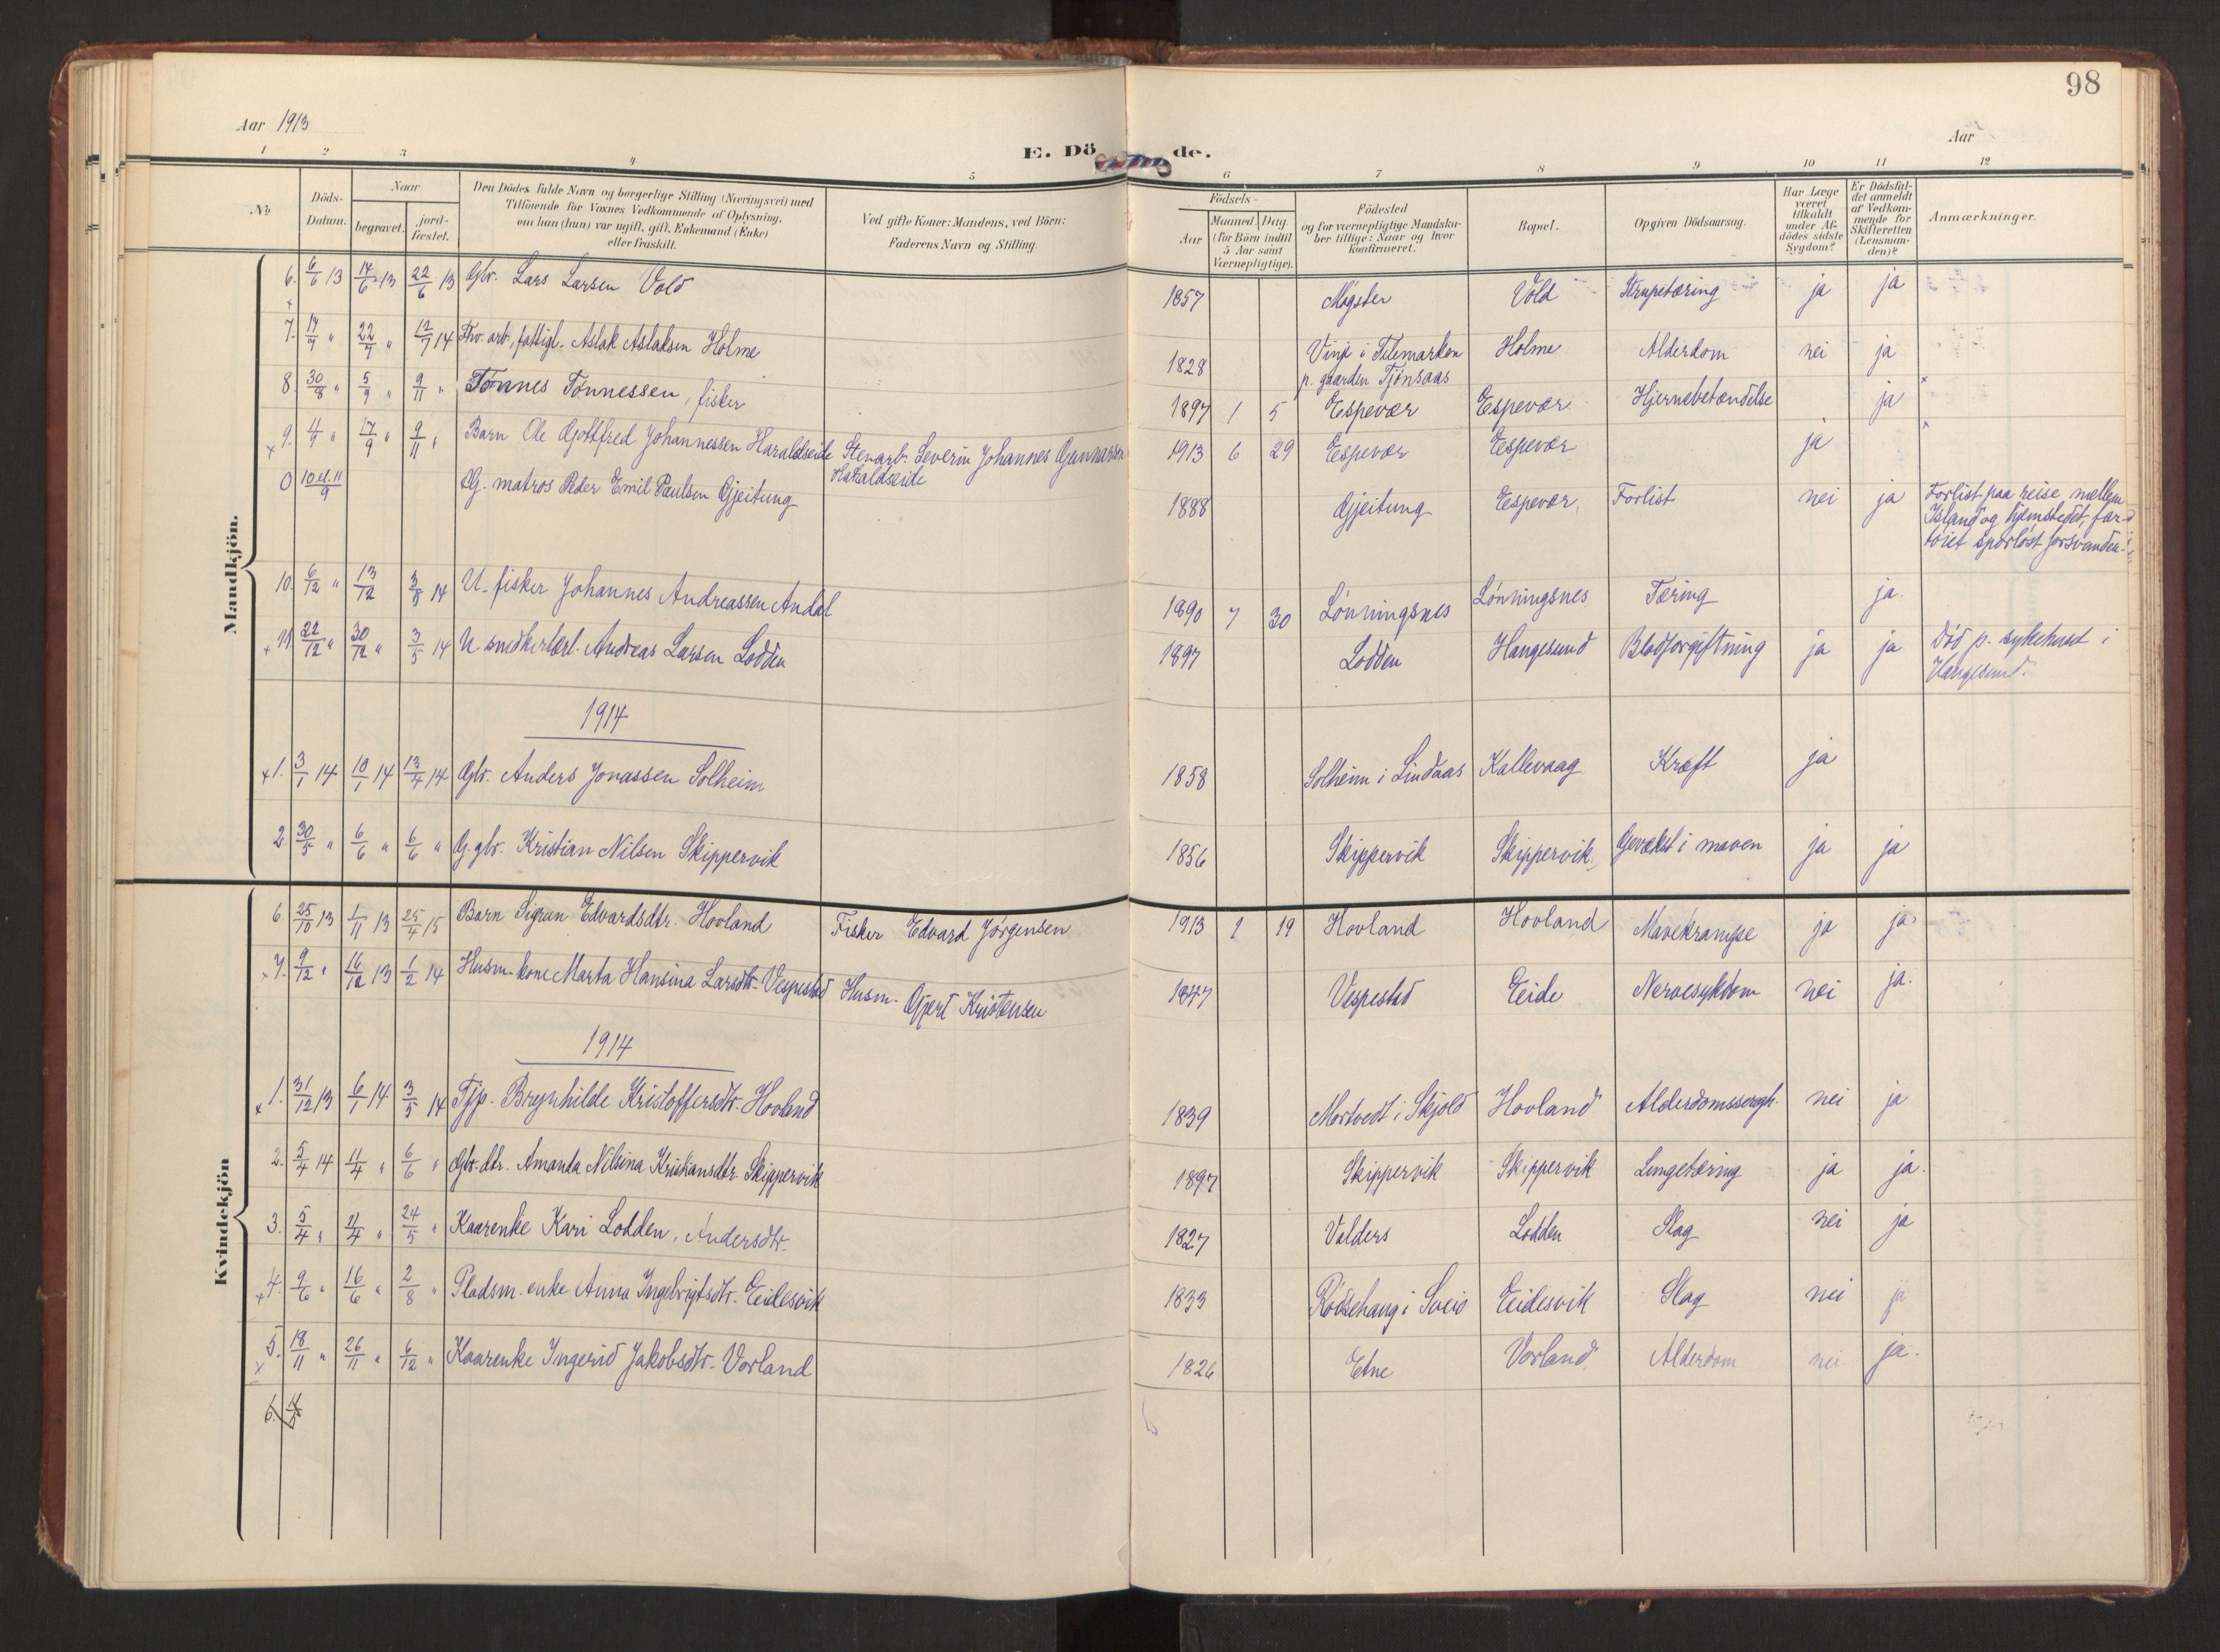 98
Aar 1913
Aar
E. Dö de.
1 2 3 4 5 6 7 8 9 10 11 12
No.
Döds-Datum.
Naar
begravet.
jord-fæstet.
Den Dödes fulde Navn og borgerlige Stilling (Næringsvei) med
Tilföiende for Voxnes Vedkommende af Oplysning,
om han (hun) var ugift, gift, Enkemand (Enke)
eller fraskilt.
Ved gifte Koner: Mandens, ved Börn:
Faderens Navn og Stilling.
Födsels-
Aar
Maaned. Dag
(for Börn indtil
5 Aar samt
Værnepligtige).
Födested
og for værnepligtige Mandska-
ber tillige: Naar og hvor
konfirmeret.
Bopæl.
Opgiven Dödsaarsag.
Har Læge
været
tilkaldt
under Af-
dödes sidste
Sygdom?
Er Dödsfal-
det anmeldt
af Vedkom-
mende for
Skifteretten
(Lensman-
den)?
Anmærkninger.
Mandkjön.
6. 6/6 13 14/6 13 22/6 13 Gbr. Lars Larsen Vold 1857 Møgster Vold Strupetæring ja ja
7. 17/7 " 22/7 " 12/7 14 Fhv. arb., fattigl. Aslak Aslaksen Holme 1828 Vinje i Telemarken p. gaarden Tjønsaas Holme Alderdom nei ja
8. 30/8 " 5/9 " 9/11 " Tønnes Tønnessen, fisker 1897 1 5 Espevær Espevær Hjernebetændelse ja x
x 9. 4/9 " 17/9 " 9/11 " Barn Ole Gottfred Johannessen Haraldseide Stenarb. Severin Johannes Gunnarsen Haraldseide 1913 6 29 Espevær Espevær ja x
0 10 el. 11/9 G. matros Peder Emil Paulsen Gjeitung 1888 Gjeitung Espevær. Forlist nei ja Forlist paa reise mellem
Island og hjemstedet, far-
tøiet sporløst forsvunden.
10. 6/12 " 13/12 3/5 14 U. fisker Johannes Andreassen Andal 1890 7 30 Lønningsnes Lønningsnes Tæring ja.
x 11. 22/12 " 30/12 " 3/5 14 U. snedkerlærl. Andreas Larsen Lodden 1897 Lodden Haugesund Blodforgiftning ja ja Død p. sykehuset i
Haugesund.
1914
x 1. 3/1 14 10/1 14 13/4 14 Gbr. Anders Jonassen Solheim 1858 Solheim i Lindaas Kallevaag Kræft ja
2. 30/5 " 6/6 " 6/6 " G. gbr. Kristian Nilsen Skippervik 1856 Skippervik Skippervik. Gevækst i maven ja ja
Kvindekjön
6. 25/10 13 1/11 13 25/4 15 Barn Sigrun Edvardsdtr. Hovland Fisker Edvard Jørgensen 1913 1 19 Hovland Hovland Mavekrampe ja ja
x 7. 9/12 " 16/12 13 1/2 14 Husm. kone Marta Hansina Larsdtr. Vespestad Husm. Gjert Kristensen 1847 Vespestad Eide Nervesykdom nei ja.
1914
x 1. 31/12 13 6/1 14 3/5 14 Tjp. Brynhilde Kristoffersdtr. Hovland 1839 Mortvedt i Skjold Hovland nei ja
2. 5/4 14 11/4 " 6/6 " Gbr. dtr. Amanda Nilsina Kristiansdtr. Skippervik 1897 Skippervik Skippervik Lungetæring ja ja.
3. 5/4 " 11/4 " 24/5 " Kaarenke Kari Lodden, Andersdtr. 1827 Valders Lodden Slag nei ja
x 4. 9/6 " 16/6 " 2/8 " Pladsm. enke Anna Ingebrigtsdtr. Eidesvik 1833 i Sveio Eidesvik Slag nei ja
x 5. 18/11 " 26/11 " 6/12 " Kaarenke Ingerid Jakobsdtr. Vorland 1826 Etne Vorland Alderdom nei ja.
6.